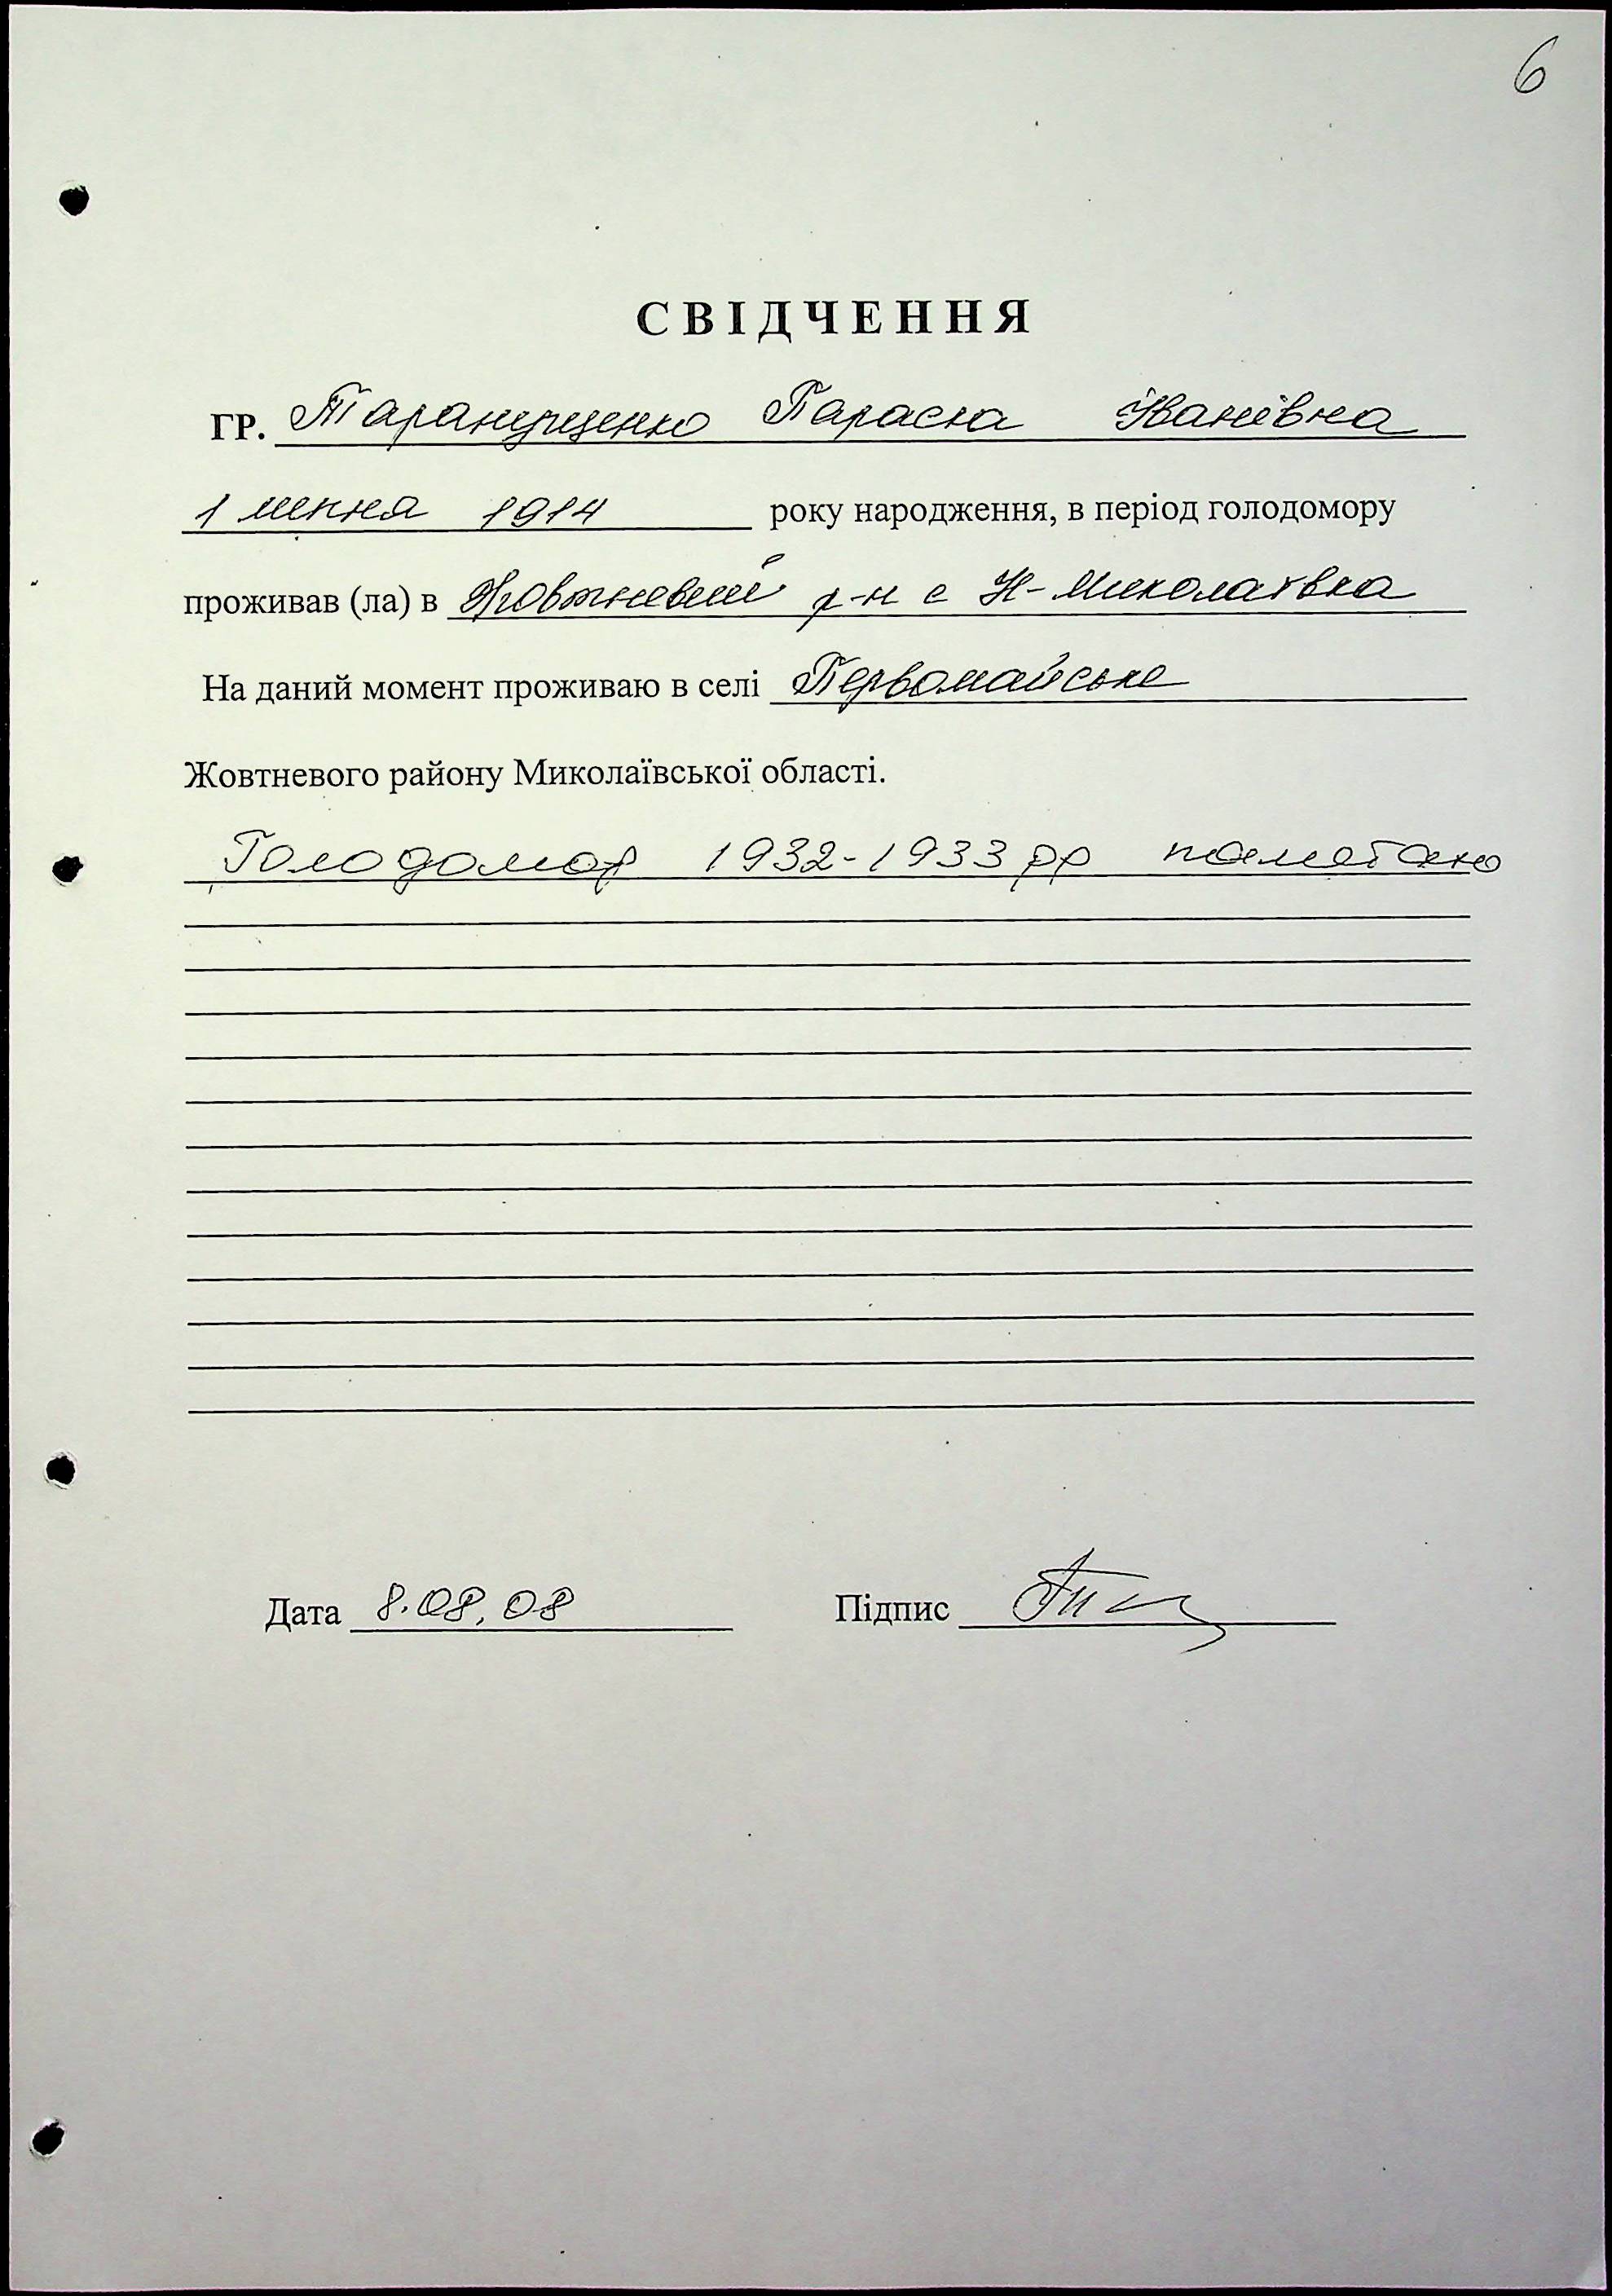 6
СВІДЧЕННЯ
ГР. Таранущенко Параска Іванівна
1 липня 1914 року народження, в період голодомору
проживав (ла) в Жовтневий р-н с Н-Миколаївка
На даний момент проживаю в селі Первомайське
Жовтневого району Миколаївської області.
Голодомор 1932-1933 рр
Дата 8.08.08 Підпис